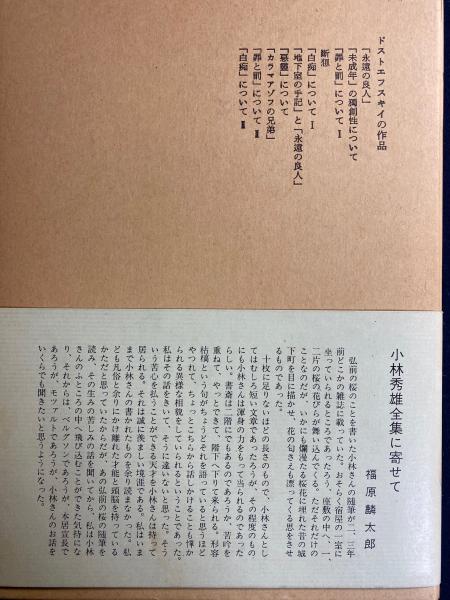 ドストエフスキイの作品
「永遠の良人」
「未成年」の獨創性について
「罪と罰」について Ⅰ
斷想
「白痴」について Ⅰ
「地下室の手記」と「永遠の良人」
「惡靈」について
「カラマアゾフの兄弟」
「罪と罰」について Ⅱ
「白痴」について Ⅱ
小林秀雄全集に寄せて
福原麟太郎
弘前の桜のことを書いた小林さんの随筆が二、三年
前どこかの雑誌に載っていた。おそらく宿屋の一室に
坐っていられるところであったろう、座敷の中へ、一、
二片の桜の花びらが舞い込んでくる。ただそれだけの
ことなのだが、いかにも爛漫たる桜花に埋れた昔の城
下町を目に描かせ、花の匂さえも漂ってくる思をさせ
るものであった。
十枚に足りないほどの長さのもので、小林さんとし
てはむしろ短い文章であったろうが、その程度のもの
にも小林さんは渾身の力をもって当られるのであった
らしい。書斎は二階にでもあるのであろうか、苦吟を
重ねて、やっとできて、階下へ下りて来られる。形容
枯槁という句がちょうどそれを語っていると思うほど
やつれて、ちょっとこちらから話しかけることも憚か
られる異様な相貌をしていられるということであった。
私はその話をきいて、そうに違いないと思った。そう
いう苦心を払うことができる天才を小林さんは持って
居られる。それは誠に羨ましい境涯である。私はいま
まで小林さんの書かれたものを余り読まなかった。私
ども凡俗と余りにかけ離れた才能と頭脳を持っている
かただと思っていたからだが、あの弘前の桜の随筆を
読み、その生みの苦しみの話を聞いてから、私は小林
さんのふところの中へ飛び込むことができた気持にな
り、それからは、ベルグソンであろうが、本居宣長で
あろうが、モツァルトであろうが、小林さんのお話を
いくらでも聞きたいと思うようになった。